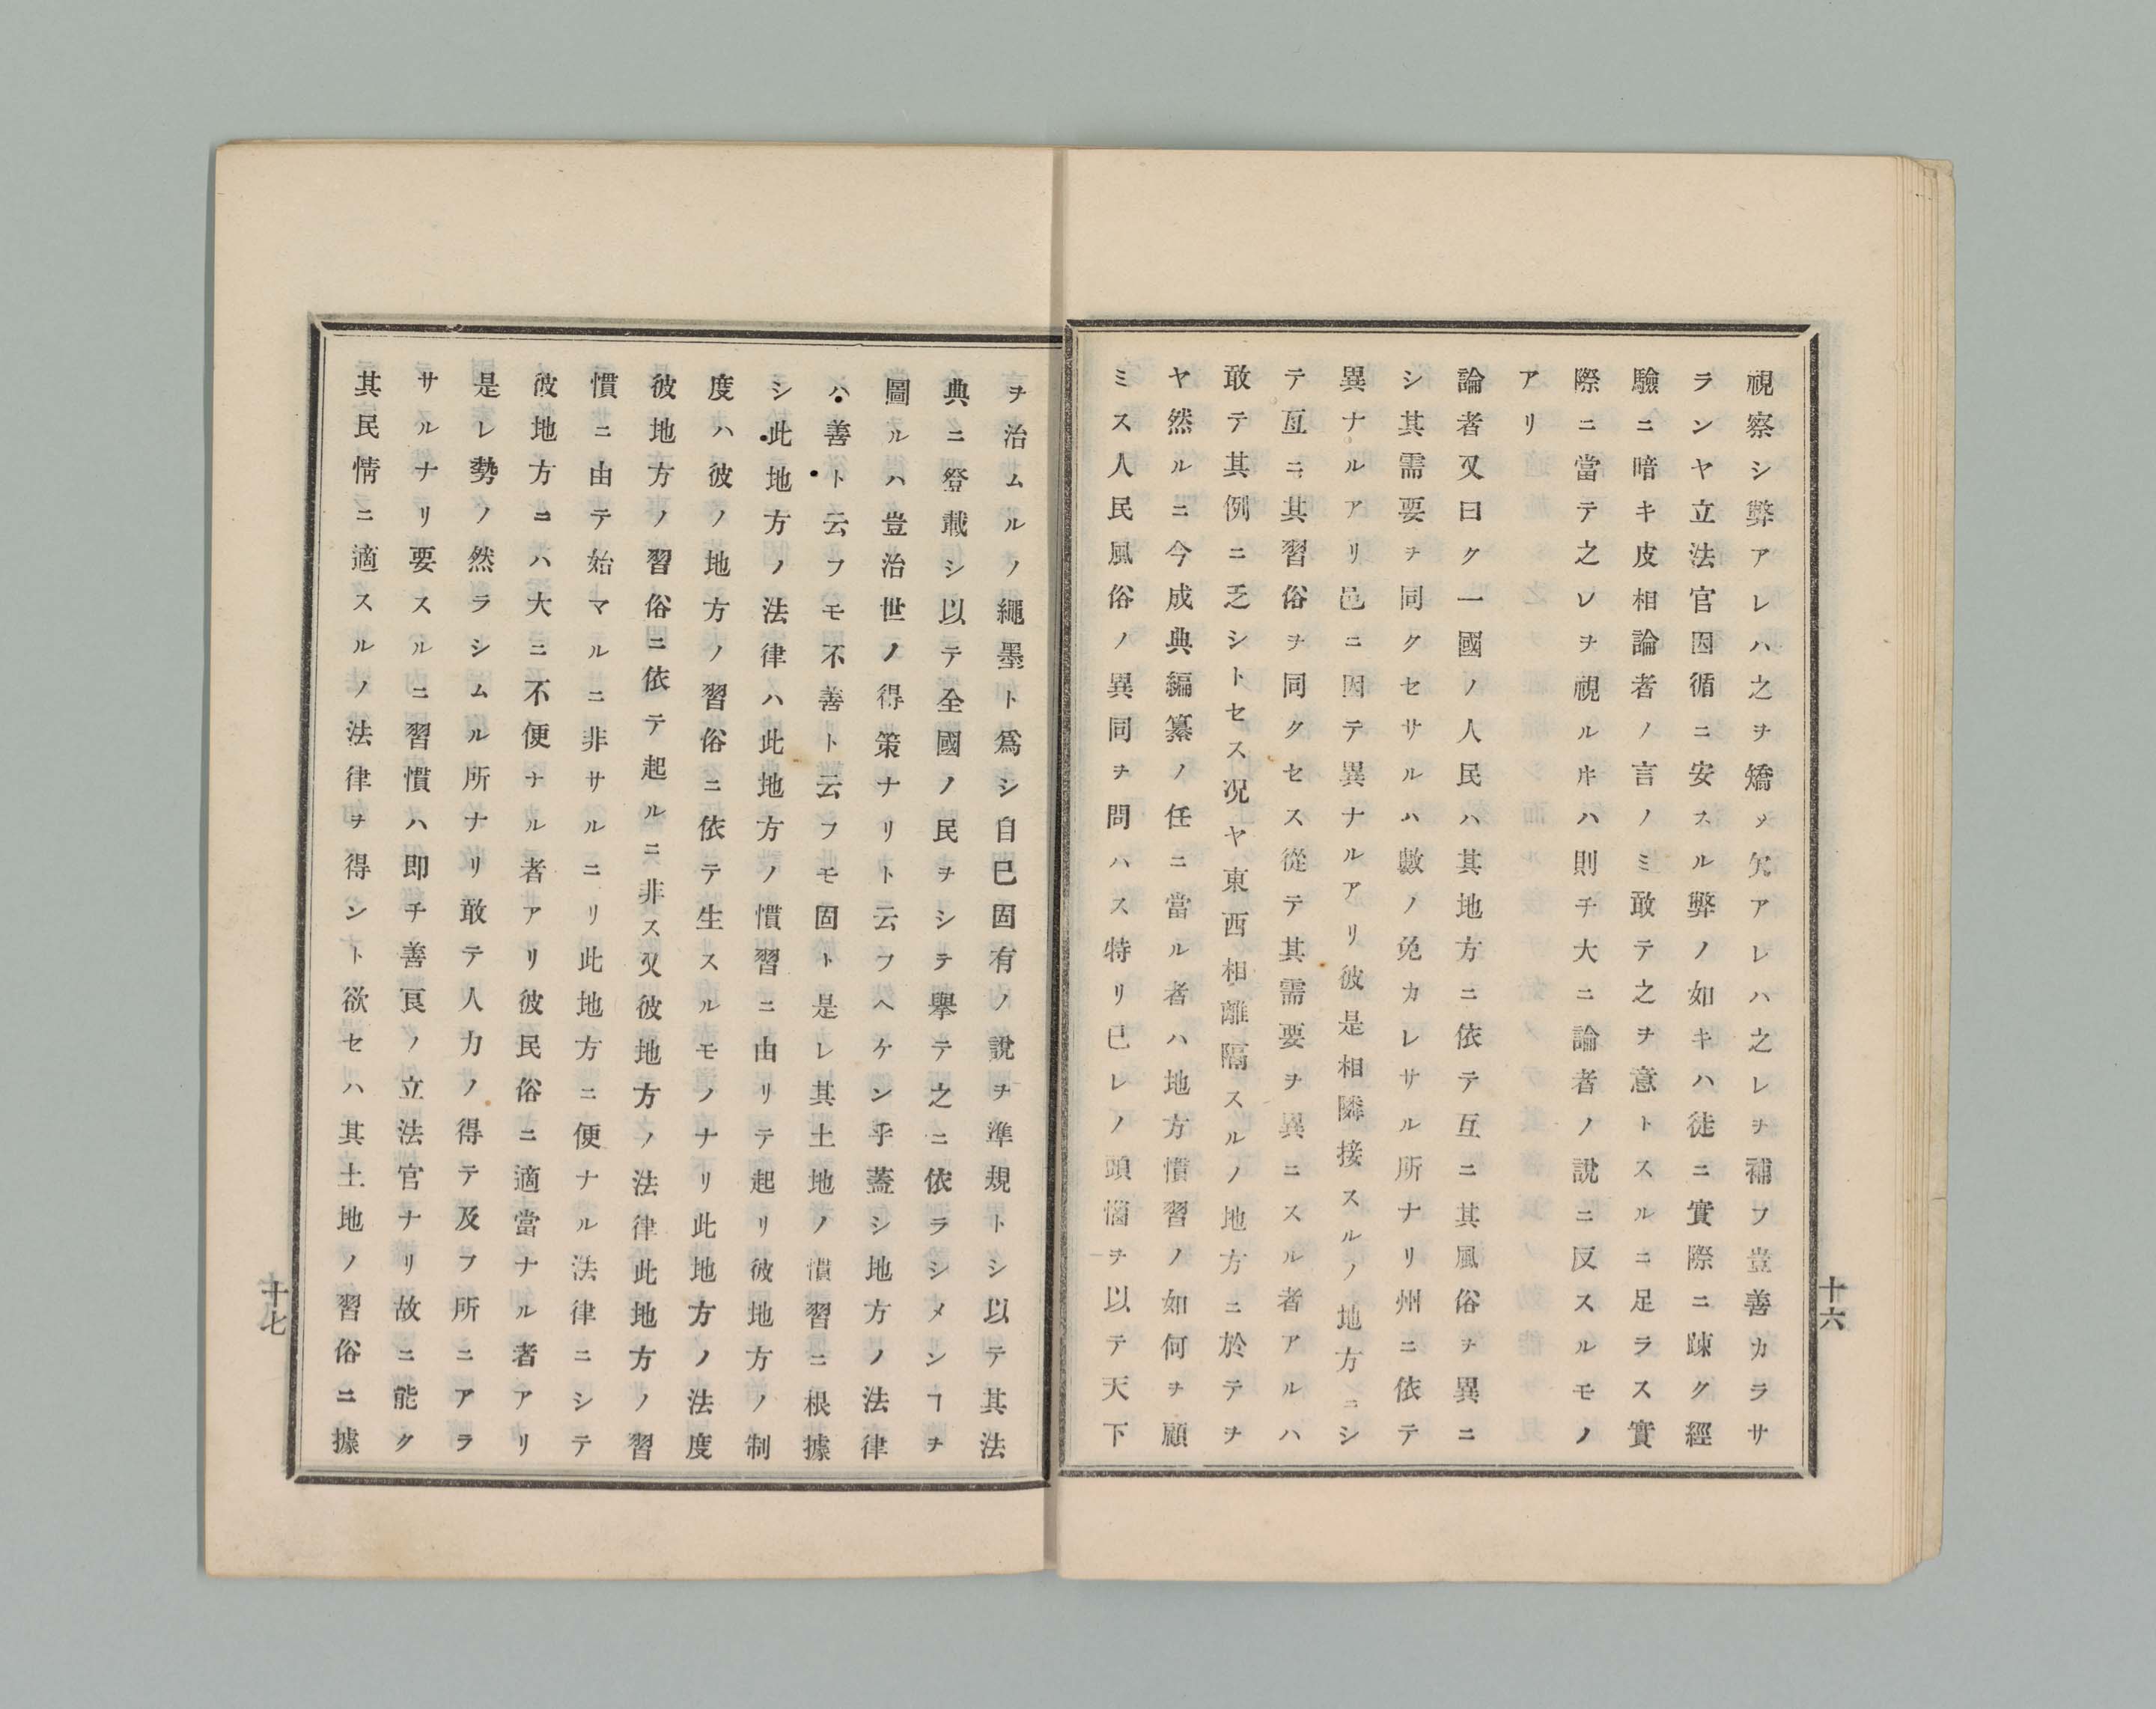 視察シ弊アレハ之ヲ矯メ欠アレハ之レヲ補フ豈善カラサ
ランヤ立法官因循ニ安スル弊ノ如キハ徒ニ實際ニ踈ク經
驗ニ暗キ皮相論者ノ言ノミ敢テ之ヲ意トスルニ足ラス實
際ニ當テ之レヲ視ルㇻキハ則チ大ニ論者ノ說ニ反スルモノ
アリ
論者又曰ク一國ノ人民ハ其地方ニ依テ互ニ其風俗ヲ異ニ
シ其需要ヲ同クセサルハ數ノ免カレサル所ナリ州ニ依テ
異ナルアリ邑ニ因テ異ナルアリ彼是相隣接スルノ地方ニシ
テ互ニ其習俗ヲ同クセス從テ其需要ヲ異ニスル者アルハ
敢テ其例ニ乏シトセス况ヤ東西相離隔スルノ地方ニ於テヲ
ヤ然ルニ今成典編纂ノ任ニ當ル者ハ地方慣習ノ如何ヲ顧
ミス人民風俗ノ異同ヲ問ハス特リ已レノ頭惱ヲ以テ天下
十六
ヲ治ムルノ繩墨ト爲シ自已固有ノ說ヲ準規トシ以テ其法
典ニ登載シ以テ全國ノ民ヲシテ擧テ之ニ依ラシメンヿヲ
圖ルハ豈治世ノ得策ナリト云フヘケン乎蓋シ地方ノ法律
ハ善ト云フモ不善ト云フモ固ト是レ其土地ノ慣習ニ根據
シ此地方ノ法律ハ此地方ノ慣習ニ由リテ起リ彼地方ノ制
度ハ彼ノ地方ノ習俗ニ依テ生スルモノナリ此地方ノ法度
彼地方ノ習俗ニ依テ起ルニ非ス又彼地方ノ法律此地方ノ習
慣ニ由テ始マルニ非サルニリ此地方ニ便ナル法律ニシテ
彼地方ニハ大ニ不便ナル者アリ彼民俗ニ適當ナル者アリ
是レ勢ノ然ラシムル所ナリ敢テ人力ノ得テ及フ所ニアラ
サルナリ要スルニ習慣ハ即チ善良ノ立法官ナリ故ニ能ク
其民情ニ適スルノ法律ヲ得ント欲セハ其土地ノ習俗ニ據
十七